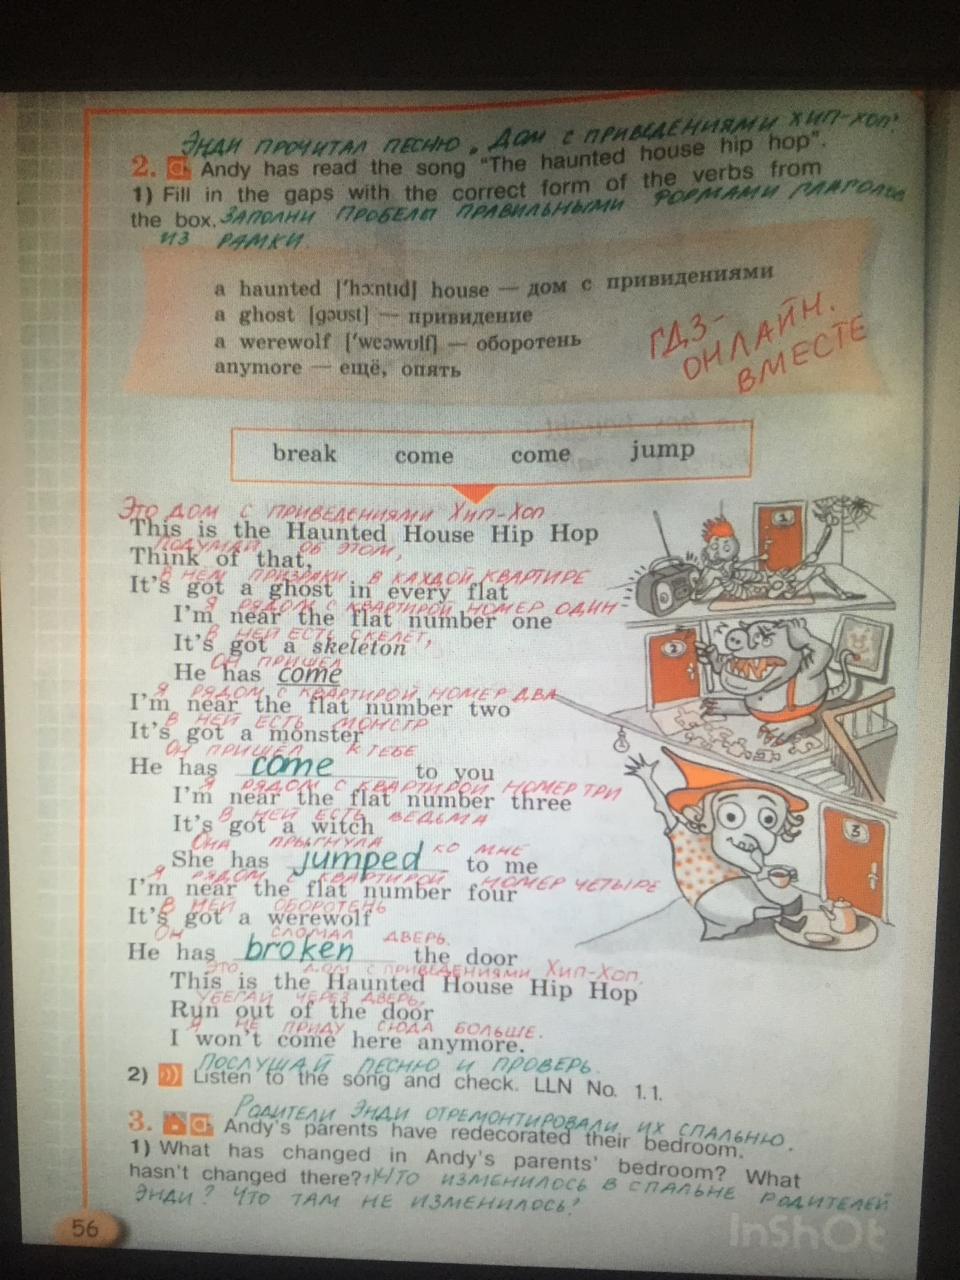 ЭНДИ ПРОЧИТАЛ ПЕСНЮ „ДОМ С ПРИВЕДЕНИЯМИ ХИП-ХОП"
2. Andy has read the song "The haunted house hip hop".
1) Fill in the gaps with the correct form of the verbs from
the box. ЗАПОЛНИ ПРОБЕЛЫ ПРАВИЛЬНЫМИ ФОРМАМИ ГЛАГОЛОВ
ИЗ РАМКИ.
a haunted ['hɔ:ntɪd] house — дом с привидениями
a ghost [gəʊst] — привидение
a werewolf ['weəwʊlf] — оборотень
anymore — ещё, опять
ГДЗ-
ОНЛАЙН.
ВМЕСТЕ
break come come jump
ЭТО ДОМ С ПРИВЕДЕНИЯМИ ХИП-ХОП
This is the Haunted House Hip Hop
ПОДУМАЙ ОБ ЭТОМ,
Think of that,
В НЕМ ПРИЗРАКИ В КАЖДОЙ КВАРТИРЕ
It's got a ghost in every flat
Я РЯДОМ С КВАРТИРОЙ НОМЕР ОДИН
I'm near the flat number one
В НЕЙ ЕСТЬ СКЕЛЕТ,
It's got a skeleton
ОН ПРИШЕЛ
He has come
Я РЯДОМ С КВАРТИРОЙ НОМЕР ДВА
I'm near the flat number two
В НЕЙ ЕСТЬ МОНСТР
It's got a monster
ОН ПРИШЕЛ К ТЕБЕ
He has come to you
Я РЯДОМ С КВАРТИРОЙ НОМЕР ТРИ
I'm near the flat number three
В НЕЙ ЕСТЬ ВЕДЬМА
It's got a witch
ОНА ПРЫГНУЛА КО МНЕ
She has jumped to me
Я РЯДОМ С КВАРТИРОЙ НОМЕР ЧЕТЫРЕ
I'm near the flat number four
В НЕЙ ОБОРОТЕНЬ
It's got a werewolf
ОН СЛОМАЛ ДВЕРЬ.
He has broken the door
ЭТО ДОМ С ПРИВЕДЕНИЯМИ ХИП-ХОП.
This is the Haunted House Hip Hop
УБЕГАЙ ЧЕРЕЗ ДВЕРЬ,
Run out of the door
Я НЕ ПРИДУ СЮДА БОЛЬШЕ.
I won't come here anymore.
1
2
3
ПОСЛУШАЙ ПЕСНЮ И ПРОВЕРЬ.
2) Listen to the song and check. LLN No. 1.1.
РОДИТЕЛИ ЭНДИ ОТРЕМОНТИРОВАЛИ ИХ СПАЛЬНЮ.
3. Andy's parents have redecorated their bedroom.
1) What has changed in Andy's parents' bedroom? What
hasn't changed there? ЧТО ИЗМЕНИЛОСЬ В СПАЛЬНЕ РОДИТЕЛЕЙ
ЭНДИ? ЧТО ТАМ НЕ ИЗМЕНИЛОСЬ?
56
InShOt